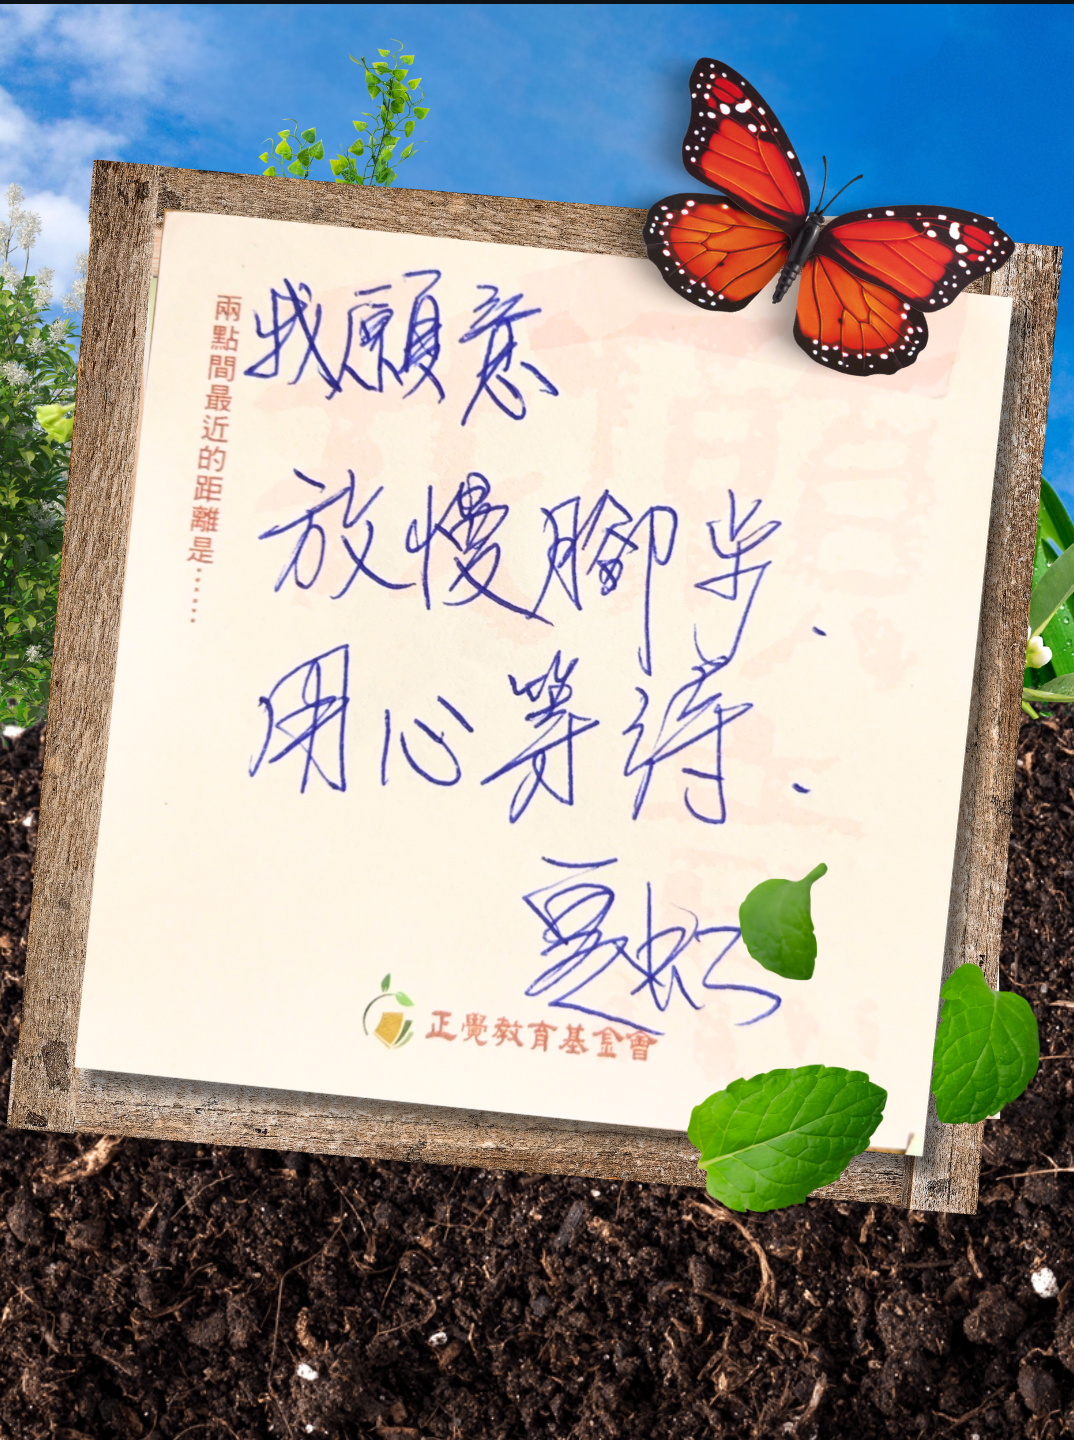 兩點間最近的距離是……
我願意
放慢腳步.
用心等待.
夏虹
正覺教育基金會